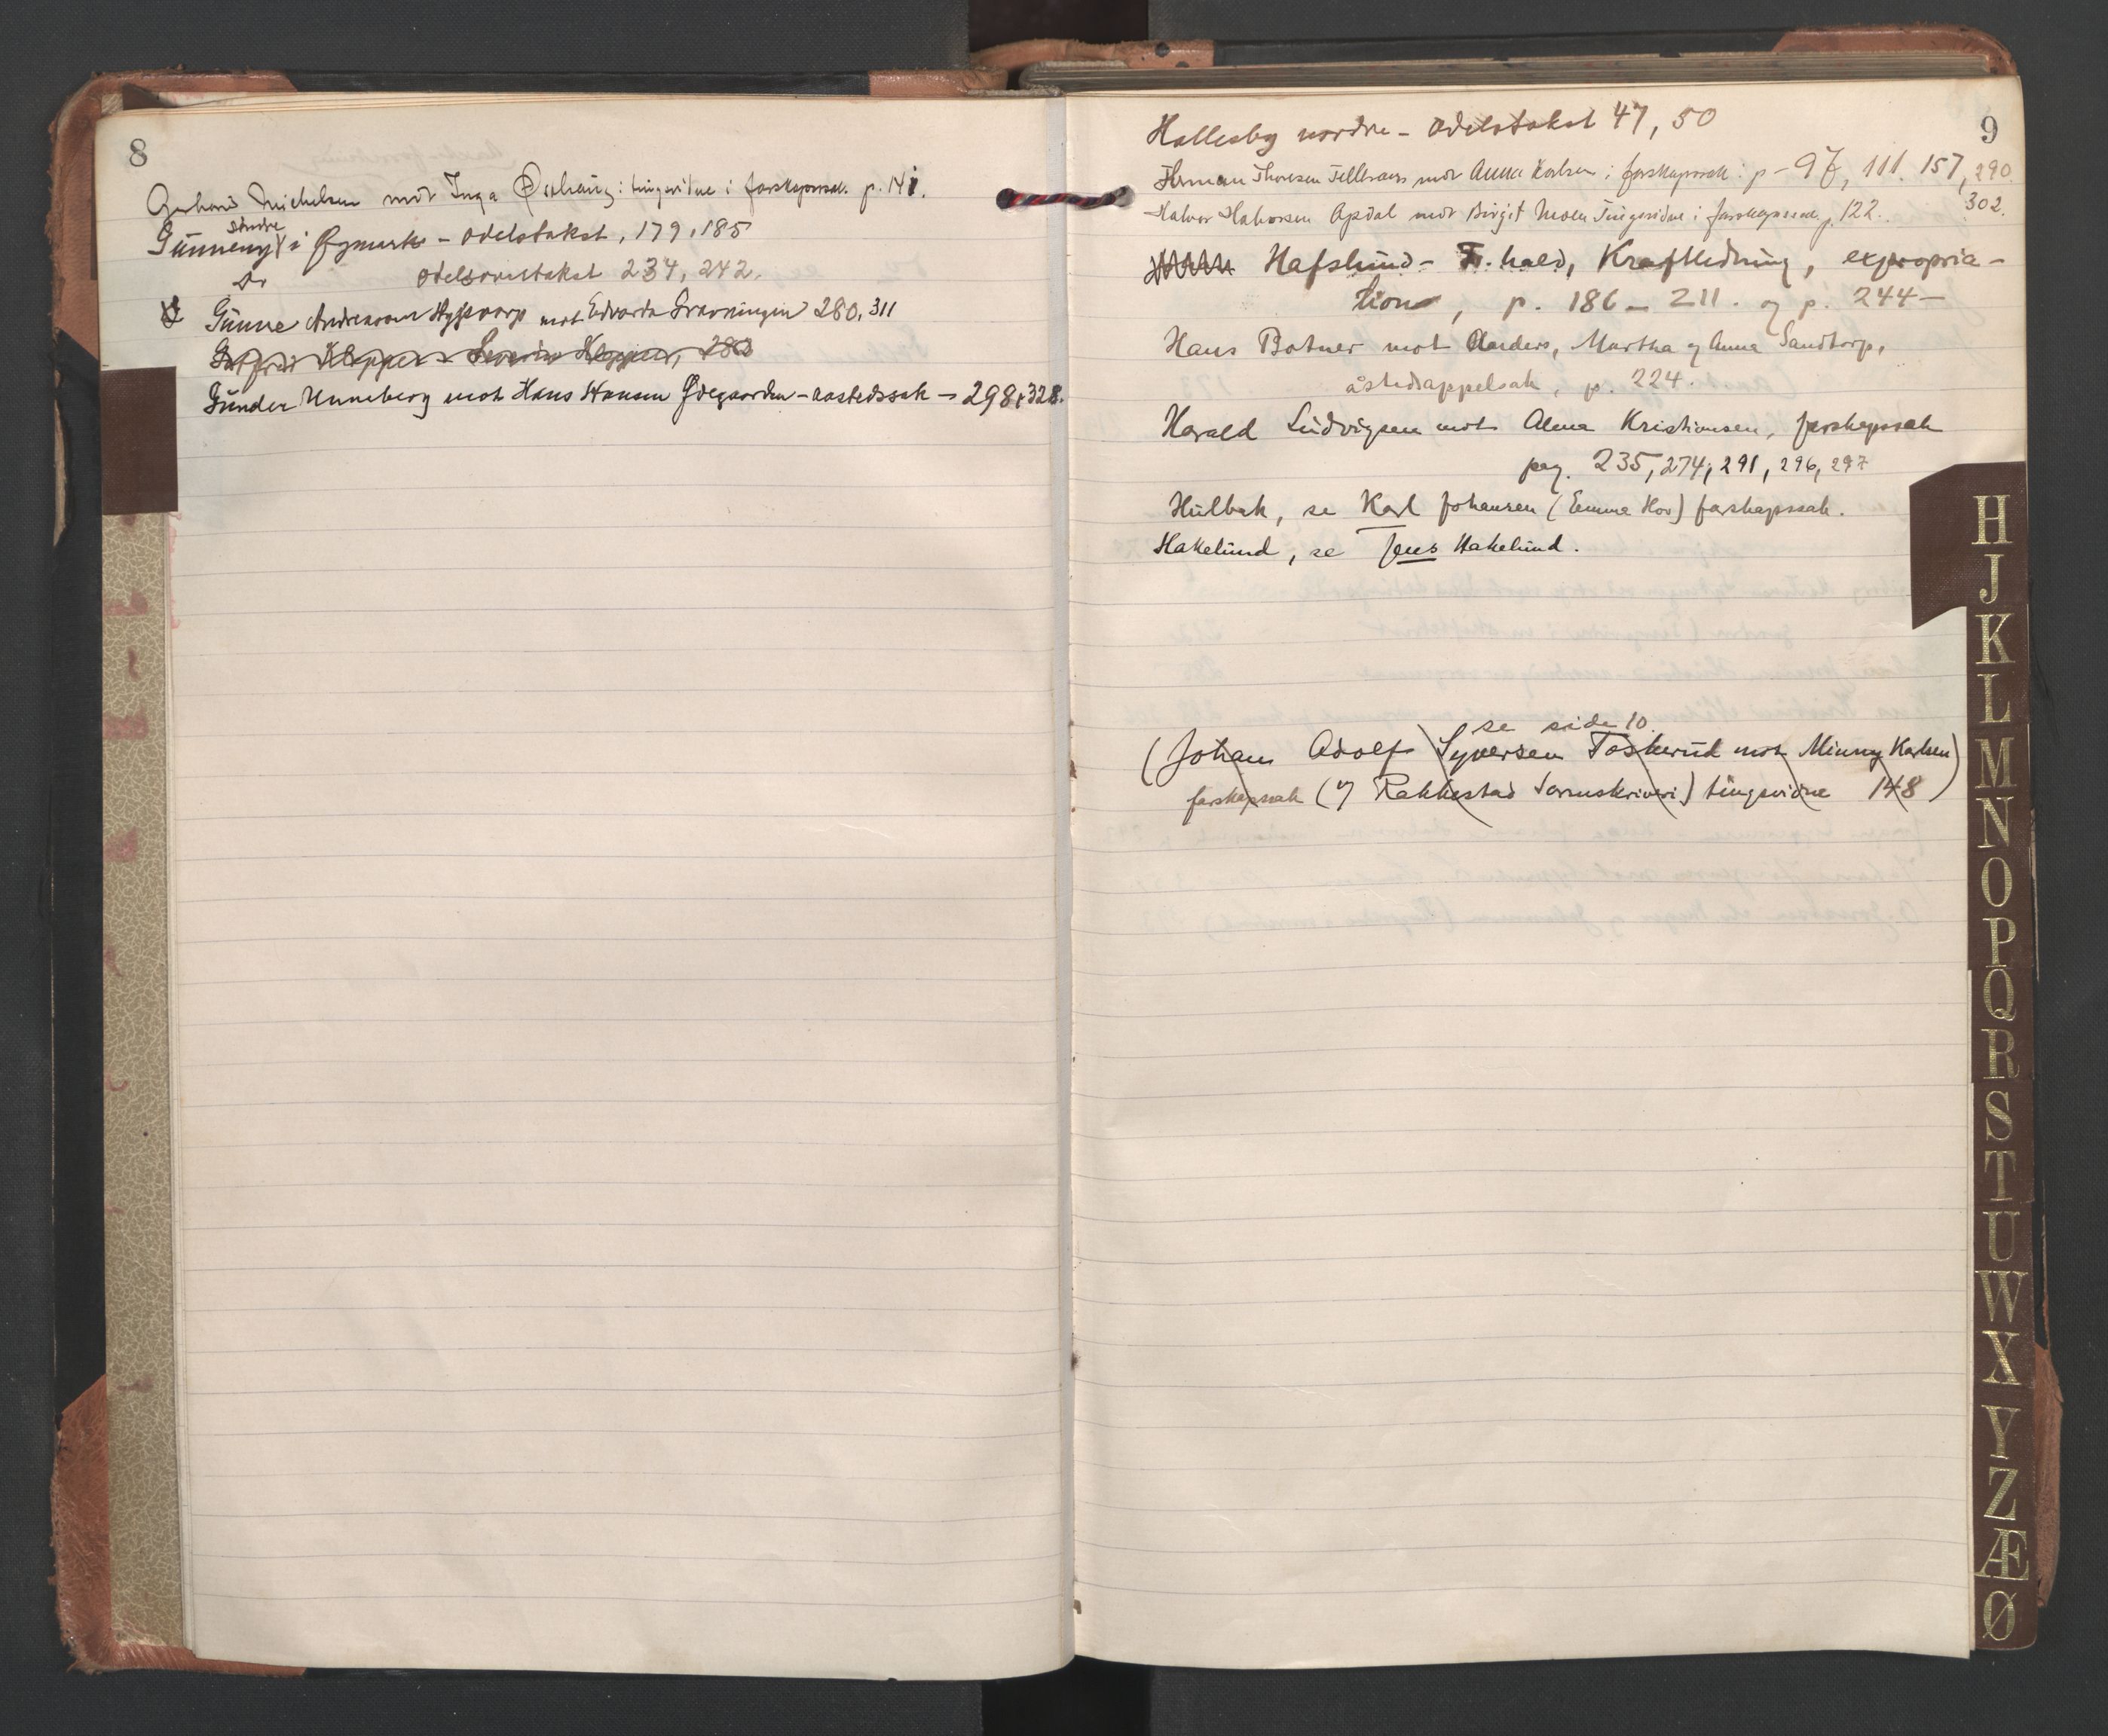 8
Gerhard Michelsen mot Inga Østhaug: tingsvidne i farskapssak. p. 141.
søndre
Günneng i Øymark - odelstakst, 179, 185
Do odelsovertakst 234, 242.
Günne Andreassen mot Edvarda Gravningen 280, 311
Kloppen - Severin Kloppen, 282
Günder Unneberg mot Hans Hansen Ødegaarden - aastedssak - 298, 328.
9
Hallesby nordre - odelstakst 47, 50
Herman Thoresen mot Anna Karlsen i farskapssak: p - 97, 111. 157, 290.
302.
Halvor Halvorsen Apdal mot Birgit Moen Tingsvidne i farskapssak p. 122.
Hafslünd - Fr.hald, Kraftledning, expropria-
tion, p. 186 - 211. og p. 244 -
Hans Botner mot Anders, Martha og Anna Sandtorp,
åstedsappelsak, p. 224.
Harald Lüdvigsen mot Alma Kristiansen, farskapssak
pag. 235, 274, 291, 296, 297
Hülbak, se Karl Johansen (Emma Hov) farskapssak.
Hakelünd, se Jens Hakelünd.
se side 10.
(Johan Adolf Syversen Toskerüd mot Minny Karlsen)
farskapssak (v/ Rakkestad Sorenskriveri) tingsvidne 148)
H
J
K
L
M
N
O
P
Q
R
S
T
U
W
X
Y
Z
Æ
Ø